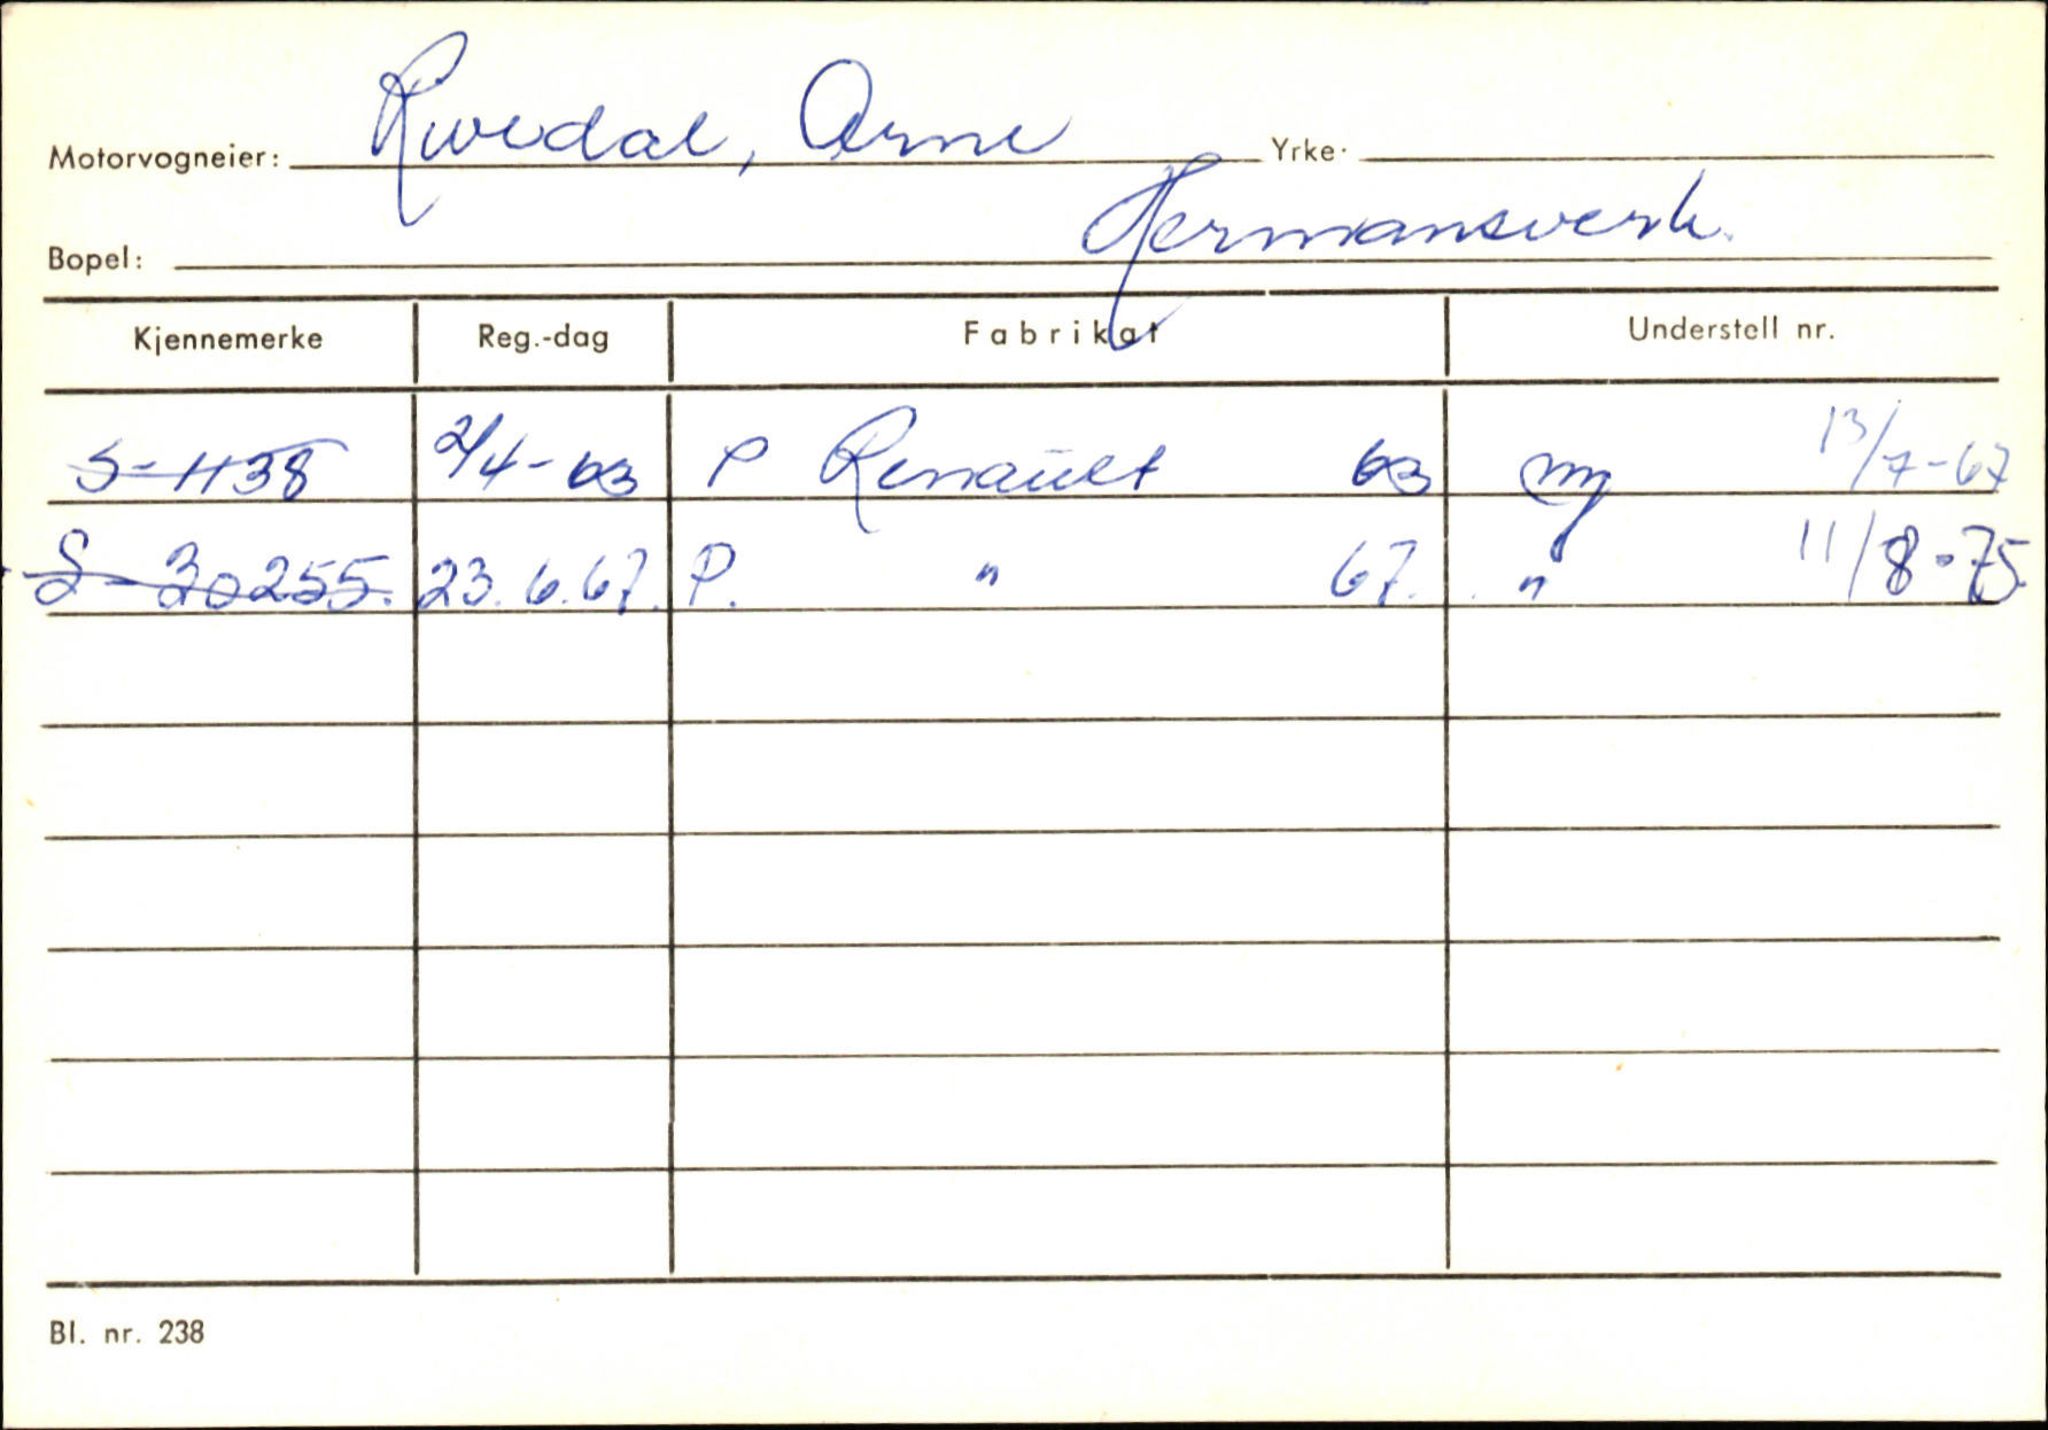 Motorvogneier: Rivedal, Arne Yrke.
Bopel: Hermansverk.
Kjennemerke Reg.-dag Fabrikat Understell nr.
S-1138 2/4-63 P Renault 63 ny 13/7-67
S-30255. 23.6.67. P. " 67. " 11/8-75.
Bl. nr. 238